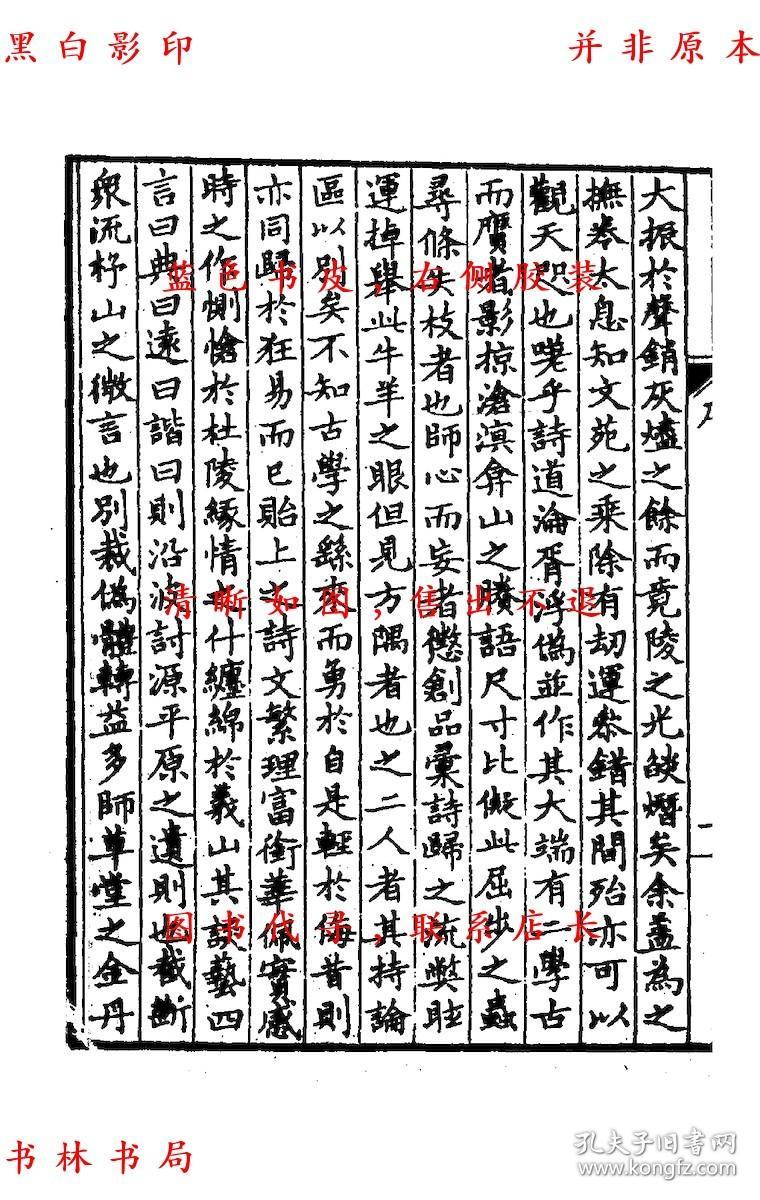 黑白影印
并非原本
大振於聲銷灰燼之餘而竟陵之光燄熸矣余蓋為之
撫卷太息知文苑之乘除有劫運參錯其間殆亦可以
觀天咫也嗟乎詩道淪胥浮偽並作其大端有二學古
而贋者影掠滄溟弇山之賸語尺寸比儗此屈步之蟲
尋條失枝者也師心而妄者懲創品彙詩歸之流弊眩
運掉舉此牛羊之眼但見方隅者也之二人者其持論
區以別矣不知古學之繇來而勇於自是輕於侮昔則
亦同歸於狂易而已貽上之詩文繁理富銜華佩實感
時之作惻愴於杜陵緣情之什纏綿於義山其談藝四
言曰典曰遠曰諧曰則沿波討源平原之遺則也截斷
衆流杼山之微言也別裁偽體轉益多師草堂之金丹
二
蓝色书皮，右侧胶装
清晰如图，售出不退
图书代寻，联系店长
书林书局
孔夫子旧书网
www.kongfz.com